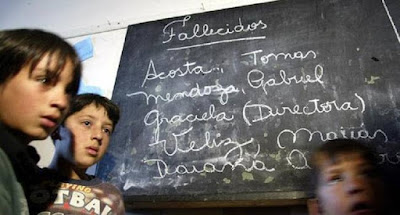 Fallecidos
Acosta., Tomas
Mendoza, Gabriel
Graciela (Directora)
Veliz, Matias
Daiana
OTBAL